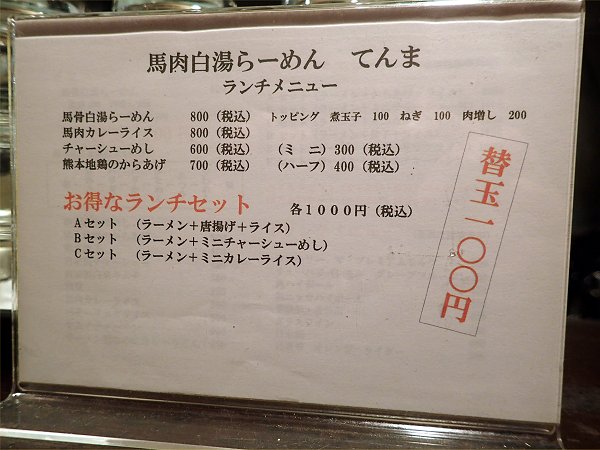 馬肉白湯らーめん　てんま
ランチメニュー
馬骨白湯らーめん　800（税込）　トッピング　煮玉子　100　ねぎ　100　肉増し　200
馬肉カレーライス　800（税込）
チャーシューめし　600（税込）　（ミニ）300（税込）
熊本地鶏のからあげ　700（税込）　（ハーフ）400（税込）
お得なランチセット　各１０００円（税込）
Ａセット　（ラーメン＋唐揚げ＋ライス）
Ｂセット　（ラーメン＋ミニチャーシューめし）
Ｃセット　（ラーメン＋ミニカレーライス）
替玉一〇〇円